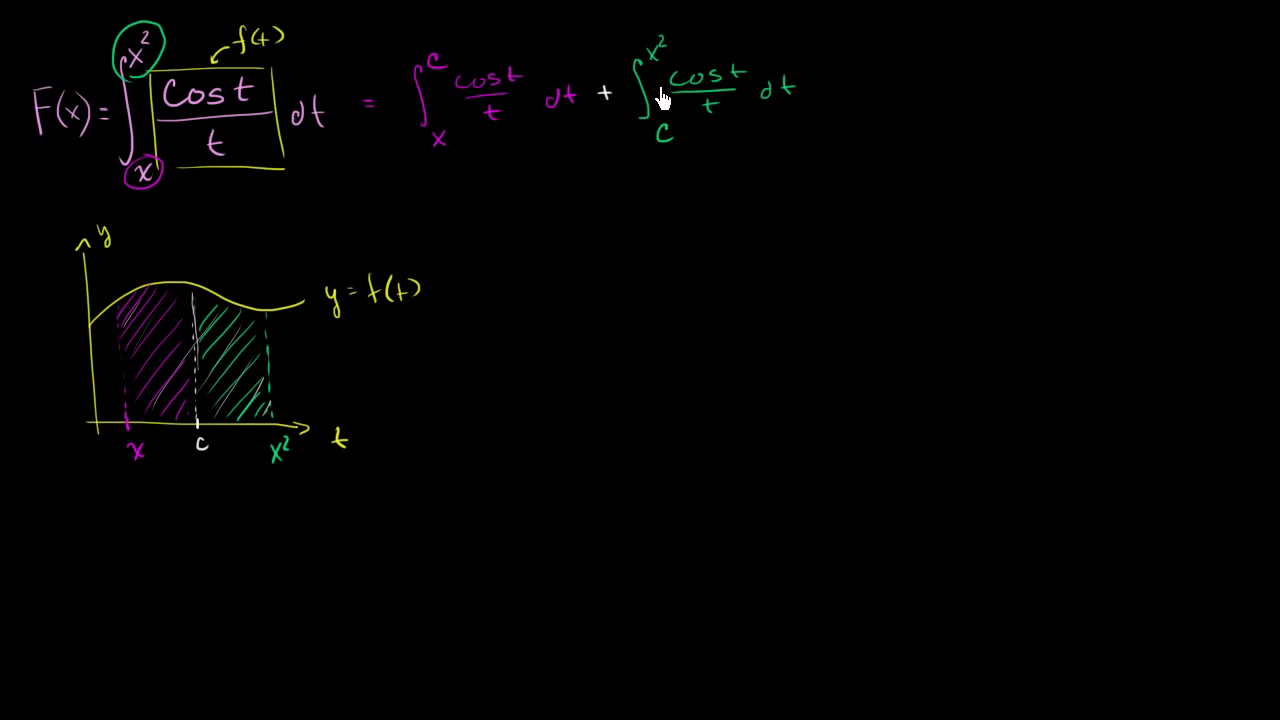 f(t)
F(x) = ∫ₓ^x² cos t / t dt = ∫ₓ^c cos t / t dt + ∫_c^x² cos t / t dt
y
y = f(t)
x c x² t